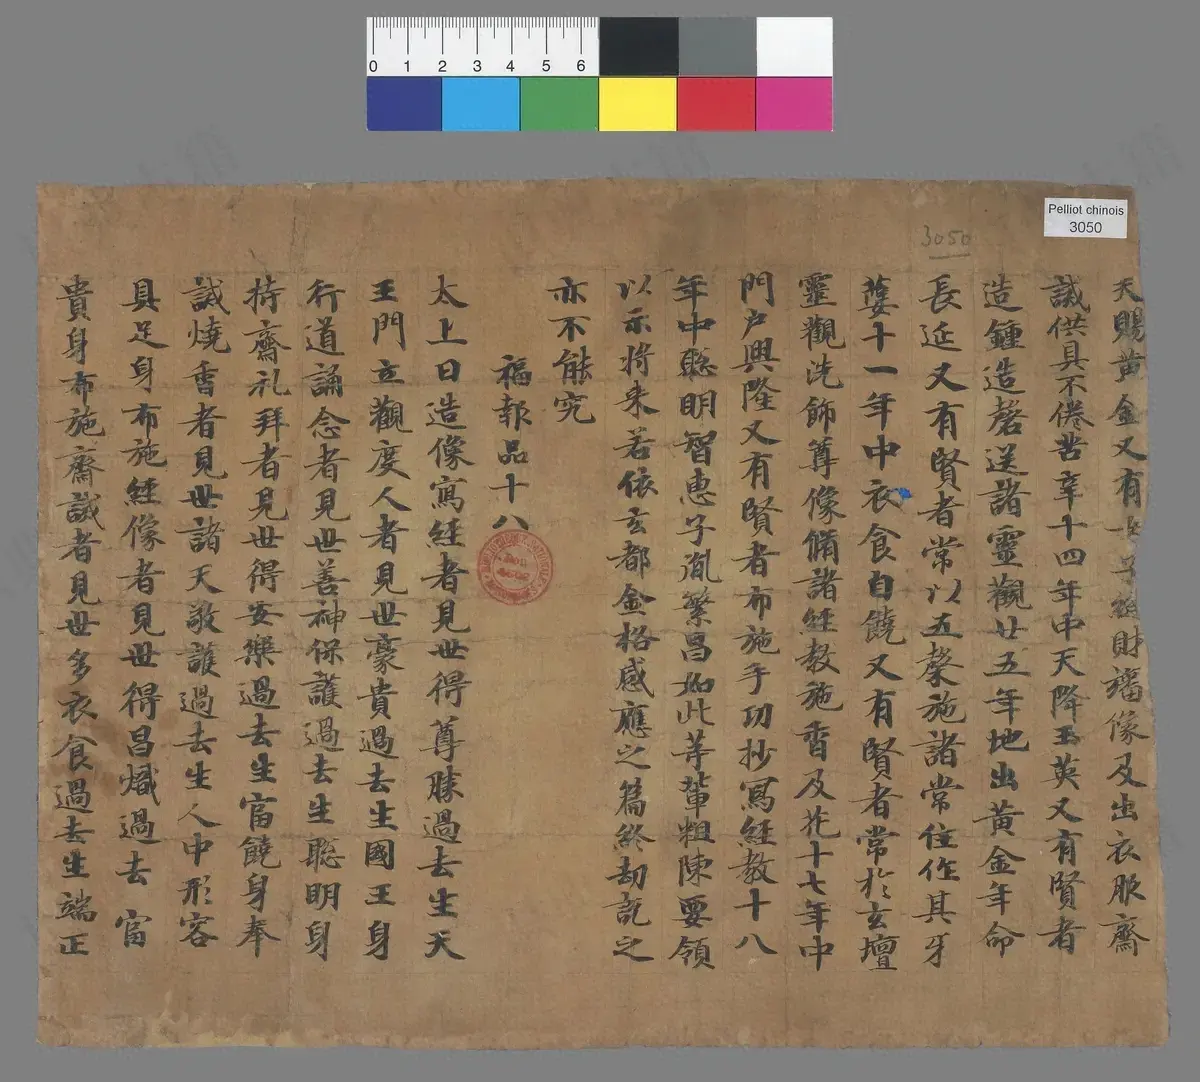 0 1 2 3 4 5 6
Pelliot chinois
3050
3050
天賜黄金又有女子經財㩲像及出衣服齋
誠供具不倦苦辛十四年中天降玉英又有賢者
造鍾造磬送諸靈觀廿五年地出黄金年命
長延又有賢者常以五槃施諸常住作其牙
蔞十一年中衣食自饒又有賢者常於玄壇
靈觀洗飾尊像備諸經教施香及花十七年中
門户興隆又有賢者布施手功抄寫經教十八
年中聦明智惠子胤繁昌如此等輩粗陳要領
以示將来若依玄都金格感應之篇終劫説之
亦不能究
福報品十八
太上曰造像寫經者見世得尊勝過去生天
王門立觀度人者見世豪貴過去生國王身
行道誦念者見世善神保護過去生聦明身
持齋礼拜者見世得安樂過去生富饒身奉
誡燒香者見世諸天敬護過去生人中形容
具足身布施經像者見世得昌熾過去富
貴身布施齋誡者見世多衣食過去生端正